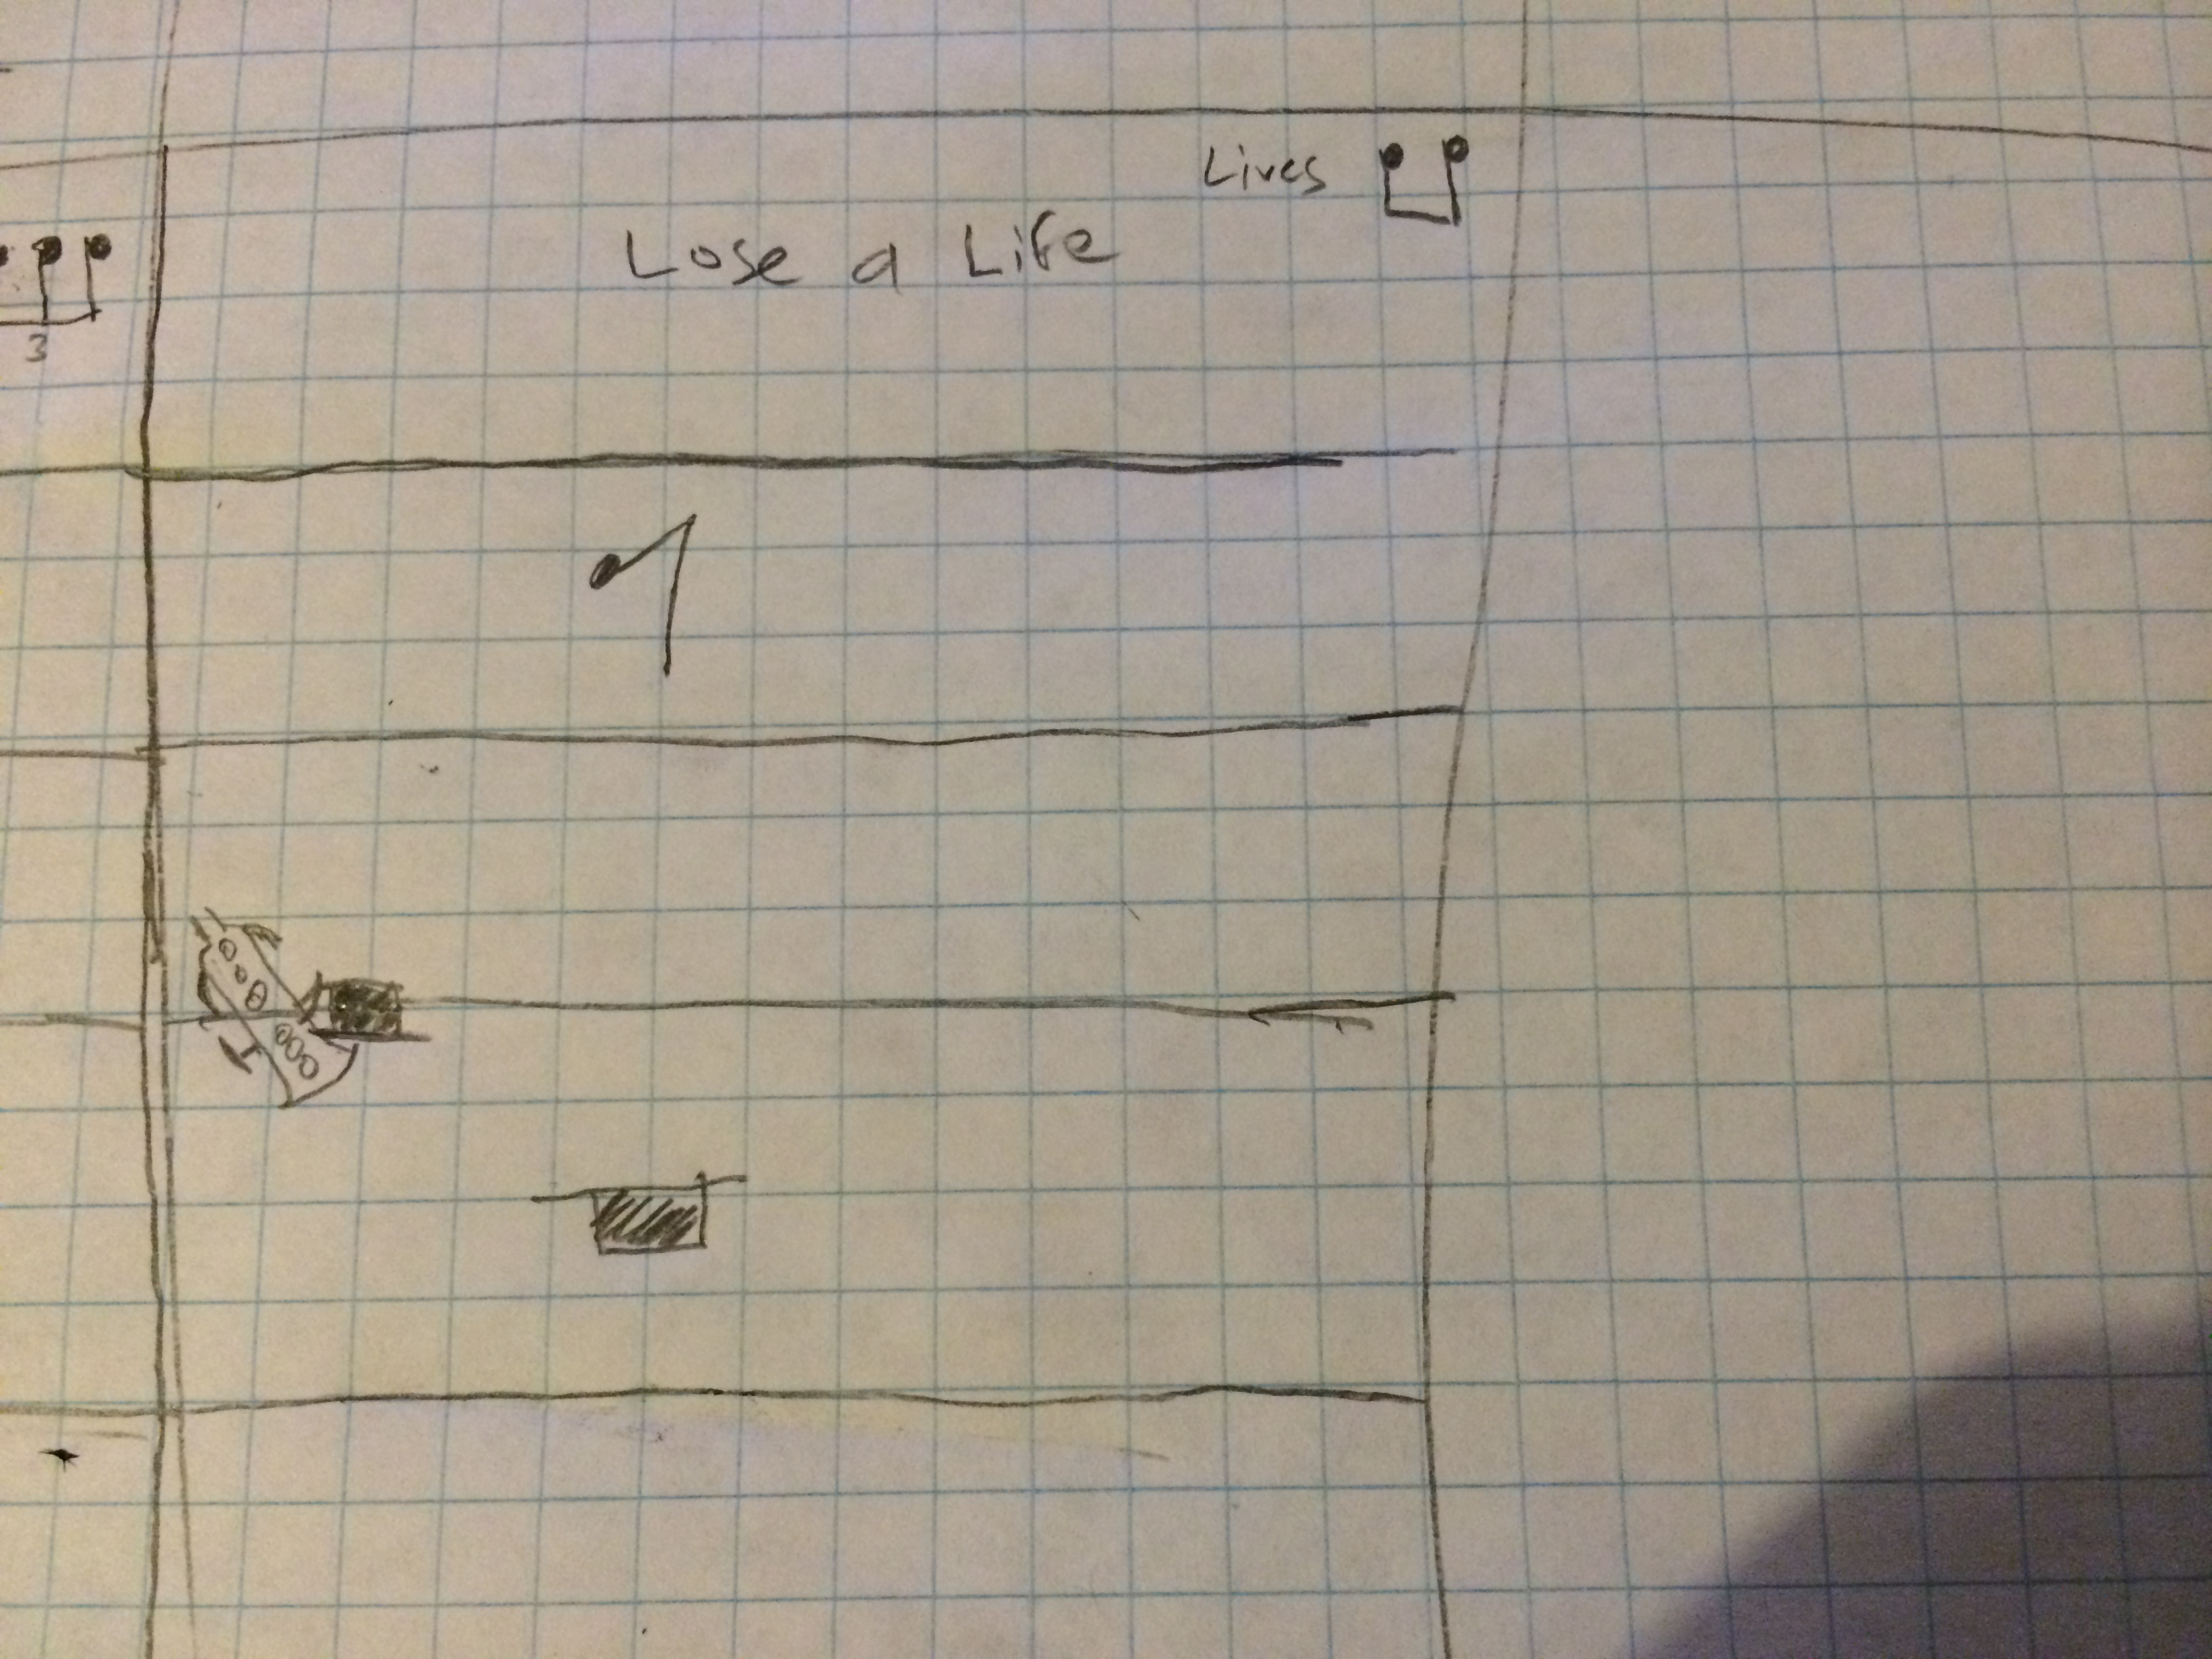 Lives
Lose a Life
3